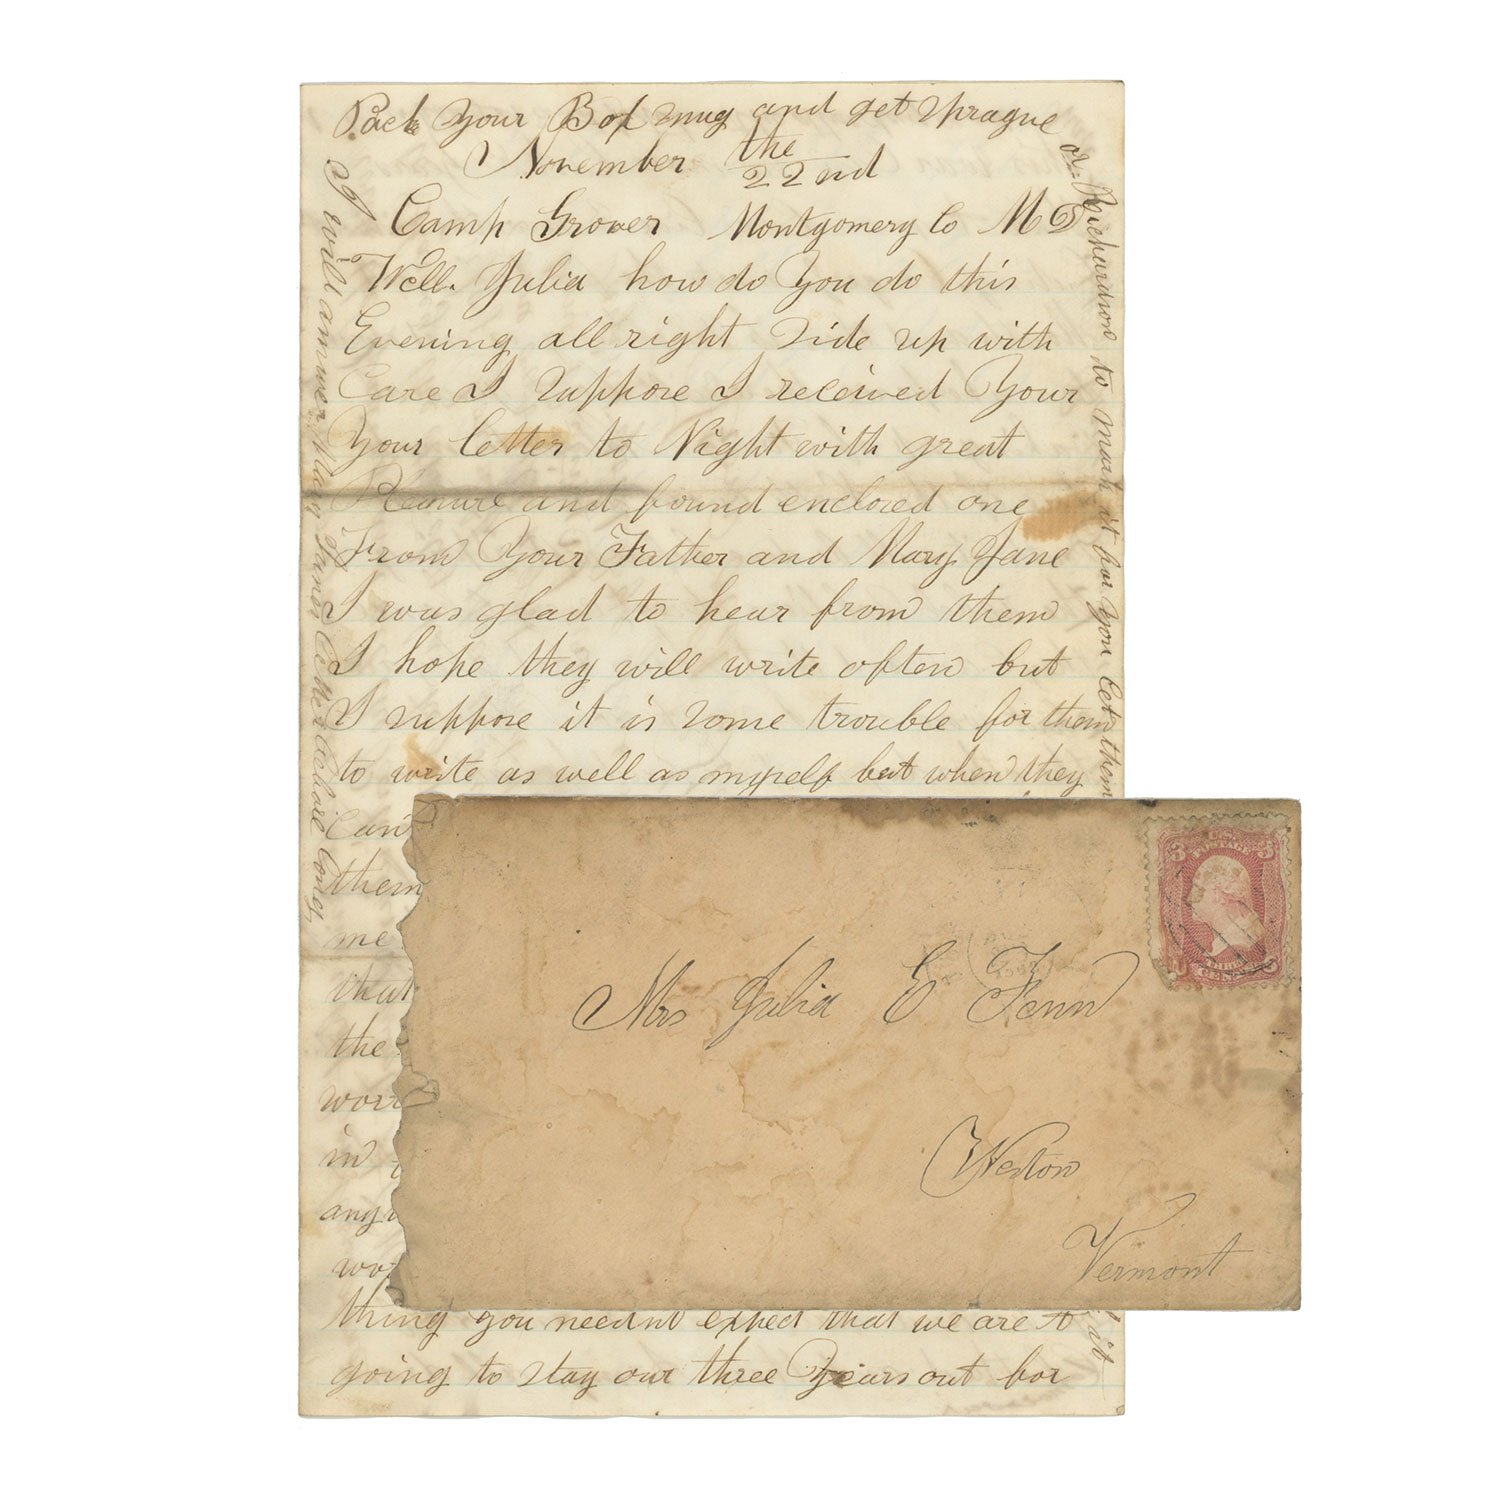 Pack Your Box snug and get Sprague
or Richardson to mark it for You Let them
November the 22nd
Camp Grover Montgomery Co MD
Well. Julia how do You do this
Evening all right Side up with
Care I suppose I received Your
Your letter to Night with great
Pleasure and found enclosed one
From Your Father and Mary Jane
I was glad to hear from them
I hope they will write often but
I suppose it is some trouble for them
to write as well as myself but when they
Can't
them
me
that
the
in
thing you neednt expect that we are
going to stay our three Years out for
I will answer Mary Janes letter
it
U.S. POSTAGE
3 3
THREE CENTS
Mrs Julia E Fenn
Weston
Vermont